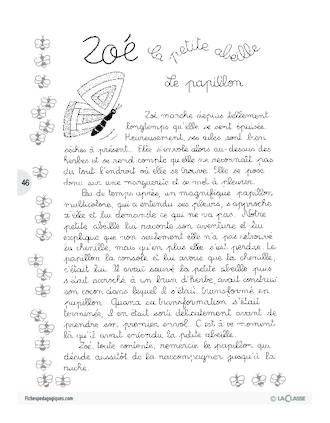 Zoé la petite abeille
Le papillon
Zoé marche depuis tellement
longtemps qu'elle se sent épuisée.
Heureusement, ses ailes sont bien
sèches à présent... Elle s'envole alors au-dessus des
herbes et se rend compte qu'elle ne reconnaît pas
du tout l'endroit où elle se trouve. Elle se pose
donc sur une marguerite et se met à pleurer.
Peu de temps après, un magnifique papillon
multicolore, qui a entendu ses pleurs, s'approche
d'elle et lui demande ce qui ne va pas. Notre
petite abeille lui raconte son aventure et lui
explique que non seulement elle n'a pas retrouvé
sa chenille, mais qu'en plus elle s'est perdue. Le
papillon la console et lui avoue que la chenille,
c'était lui. Il avait sauvé la petite abeille puis
s'était accroché à un brin d'herbe, avait construit
son cocon dans lequel il s'était transformé en
papillon. Quand sa transformation s'était
terminée, il en était sorti délicatement avant de
prendre son premier envol. C'est à ce moment
là qu'il avait entendu la petite abeille.
Zoé, toute contente, remercie le papillon qui
décide aussitôt de la raccompagner jusqu'à la
ruche.
46
Fichespedagogiques.com
© LA CLASSE